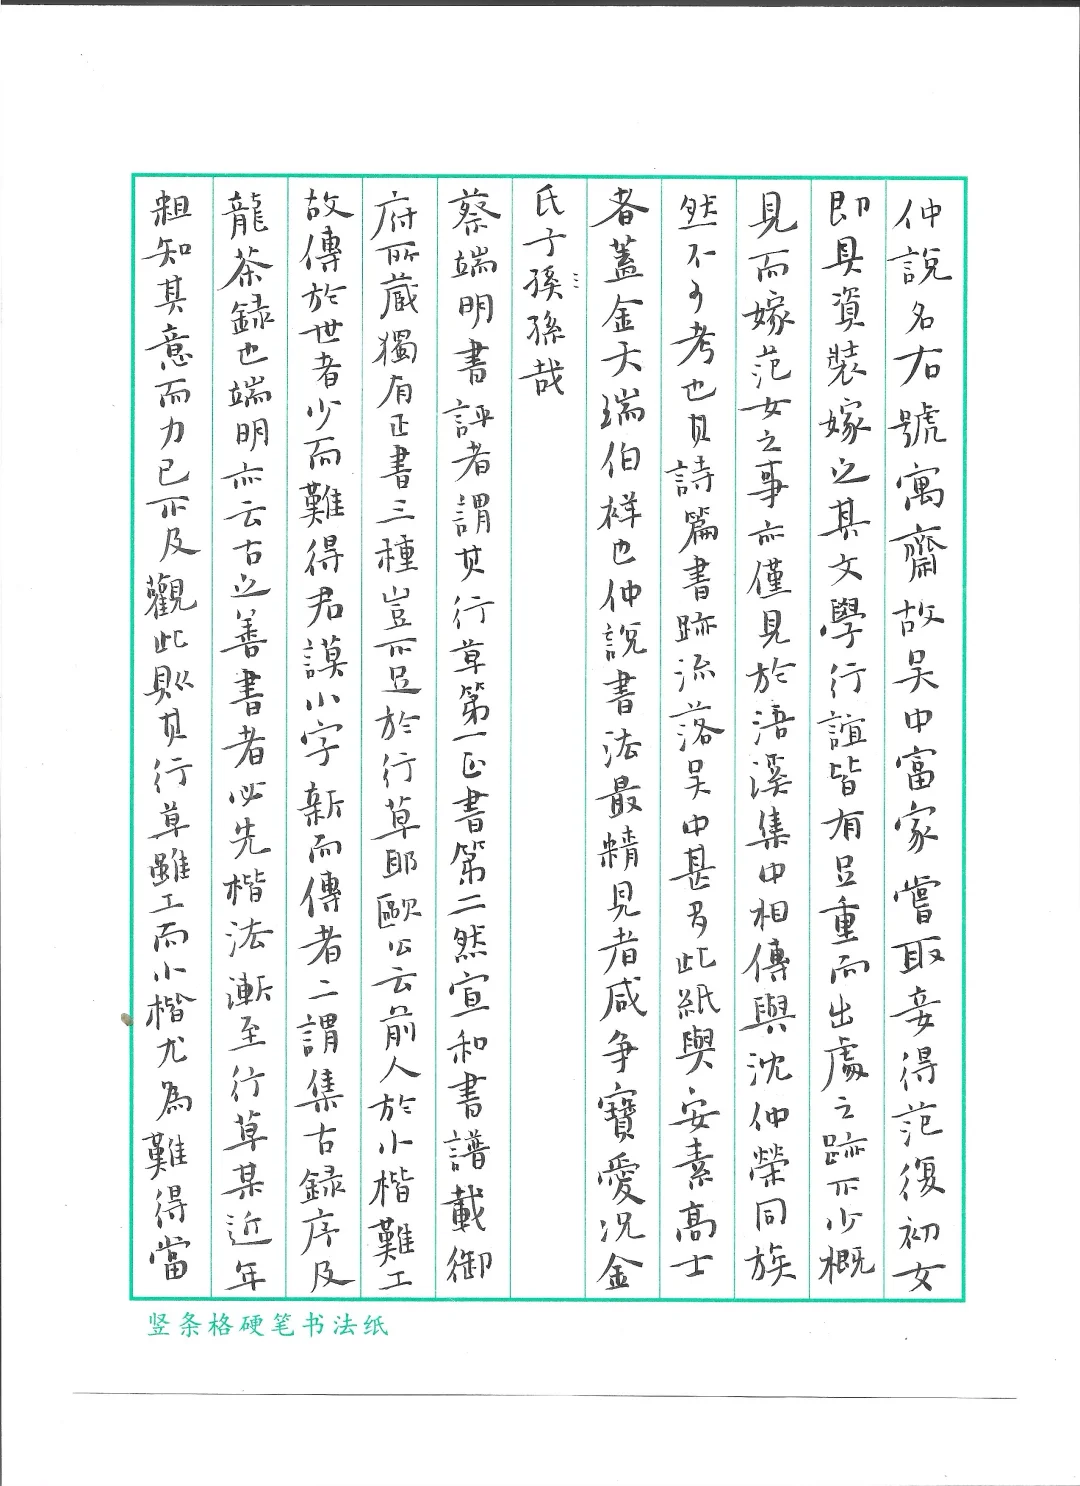 仲說名右號寓齋故吴中富家嘗取妾得范復初女
即具資裝嫁之其文學行誼皆有足重而出處之跡不少概
見而嫁范女之事亦僅見於浯溪集中相傳與沈仲榮同族
然不可考也其詩篇書跡流落吴中甚多此紙與安素高士
者蓋金天瑞伯祥也仲說書法最精見者咸争寶愛况金
氏子孫孫哉
蔡端明書評者謂其行草第一正書第二然宣和書譜載御
府所蔵獨有正書三種豈不足於行草耶歐公云前人於小楷難工
故傳於世者少而難得君謨小字新而傳者二謂集古録序及
龍茶録也端明亦云古之善書者必先楷法漸至行草某近年
粗知其意而力已不及觀此則其行草雖工而小楷尤為難得當
竖条格硬笔书法纸